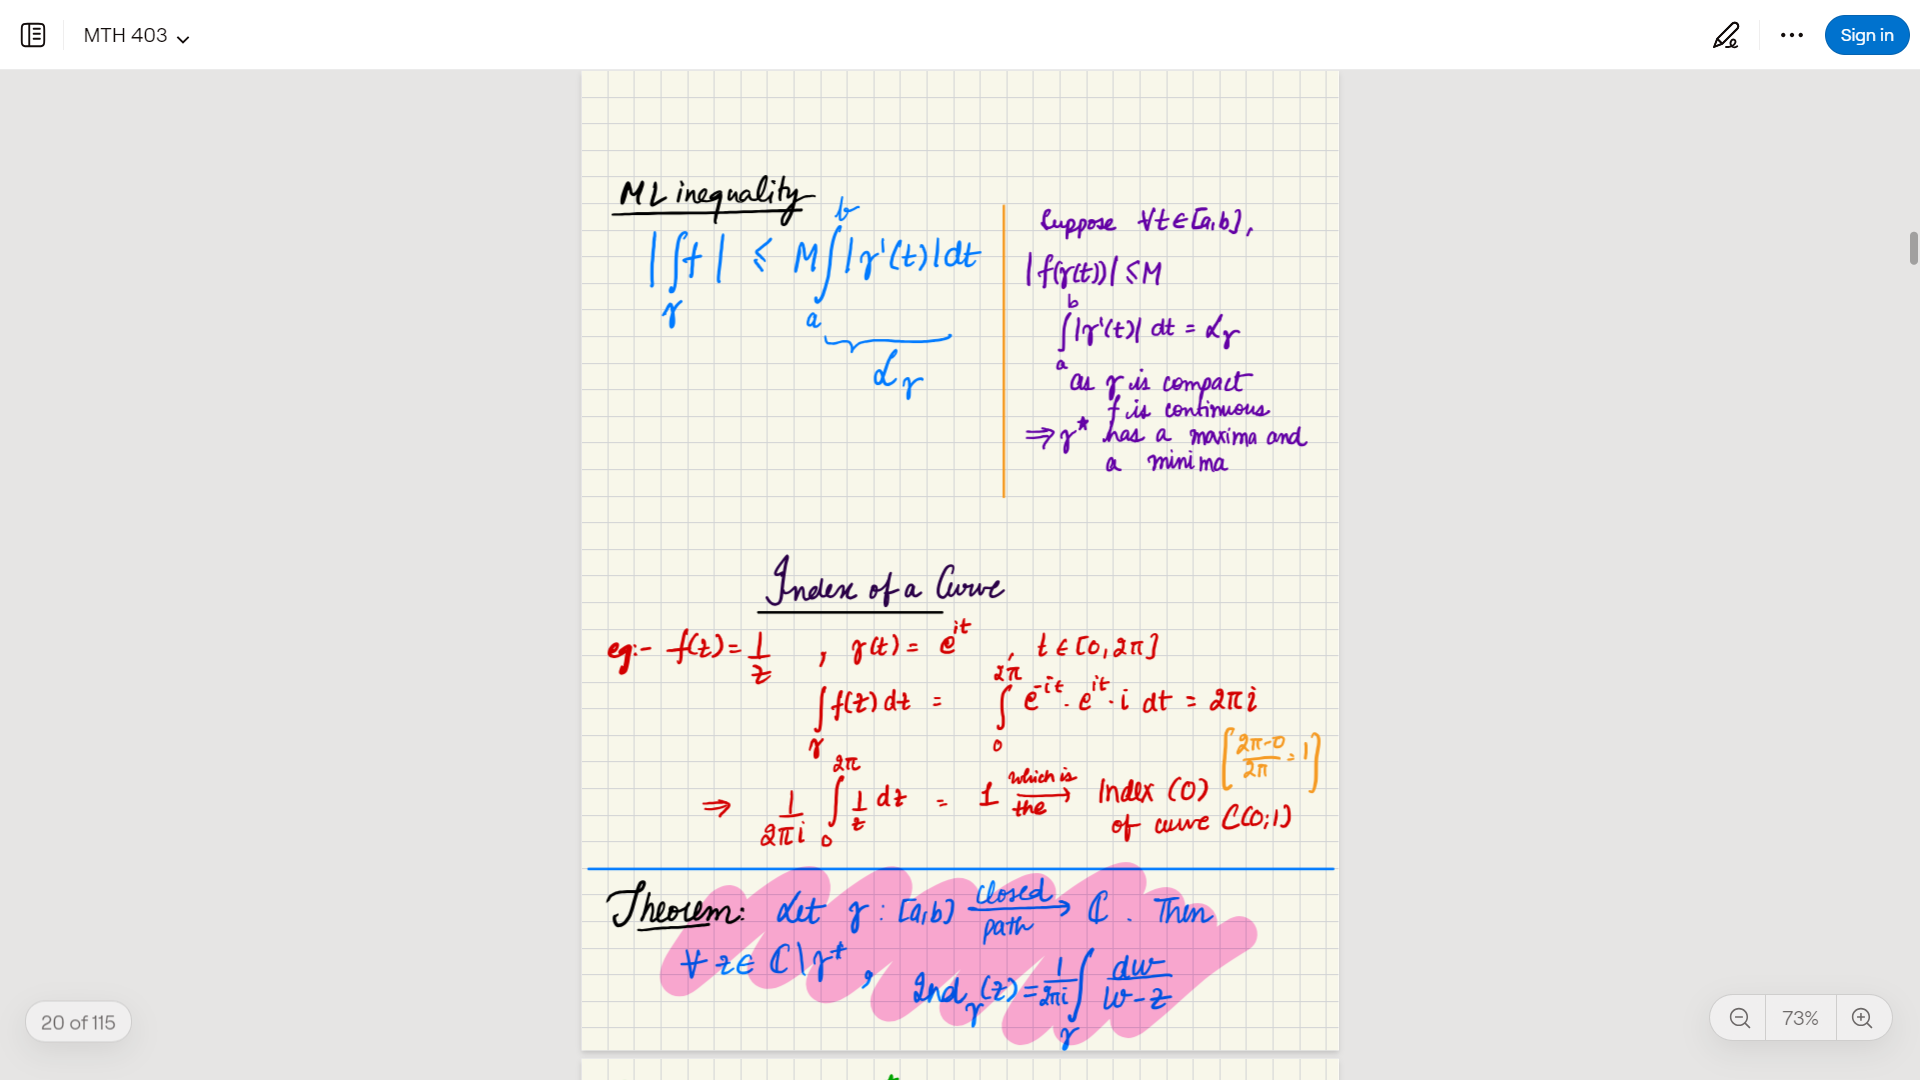 MTH 403
Sign in
ML inequality
|∫_γ f| ≤ M ∫_a^b |γ'(t)| dt
L_γ
Suppose ∀t∈[a,b],
|f(γ(t))| ≤ M
∫_a^b |γ'(t)| dt = L_γ
as γ is compact
f is continuous
⇒ γ* has a maxima and
a minima
Index of a Curve
eg:- f(z) = 1/z , γ(t) = e^{it} , t ∈ [0, 2π]
∫_γ f(z) dz = ∫_0^{2π} e^{-it} · e^{it} · i dt = 2πi
[(2π-0)/2π = 1]
⇒ 1/2πi ∫_0^{2π} 1/z dz = 1 which is the → Index (0)
of curve C(0;1)
Theorem: Let γ : [a,b] closed path → ℂ . Then
∀ z∈ ℂ\γ* , Ind_γ(z) = 1/2πi ∫_γ dw/(w-z)
20 of 115
73%